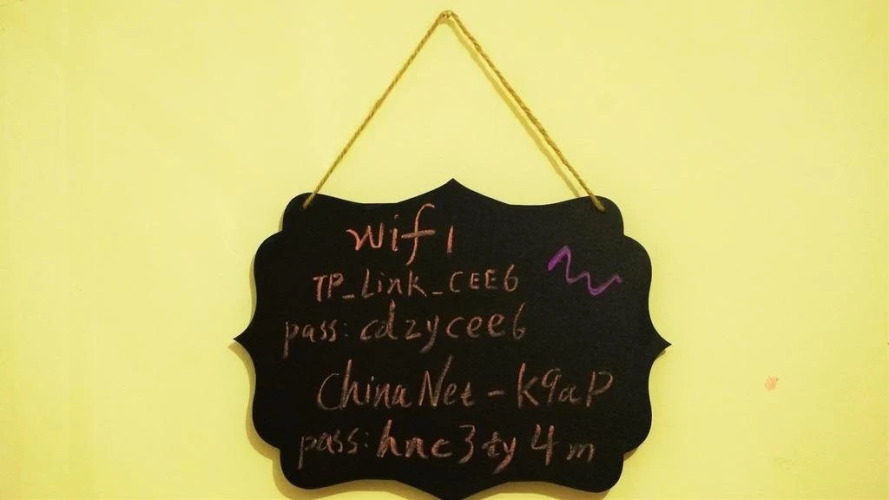 wifi
TP_Link_CEE6
pass: cdzycee6
ChinaNet-K9aP
pass: hnc3ty4m